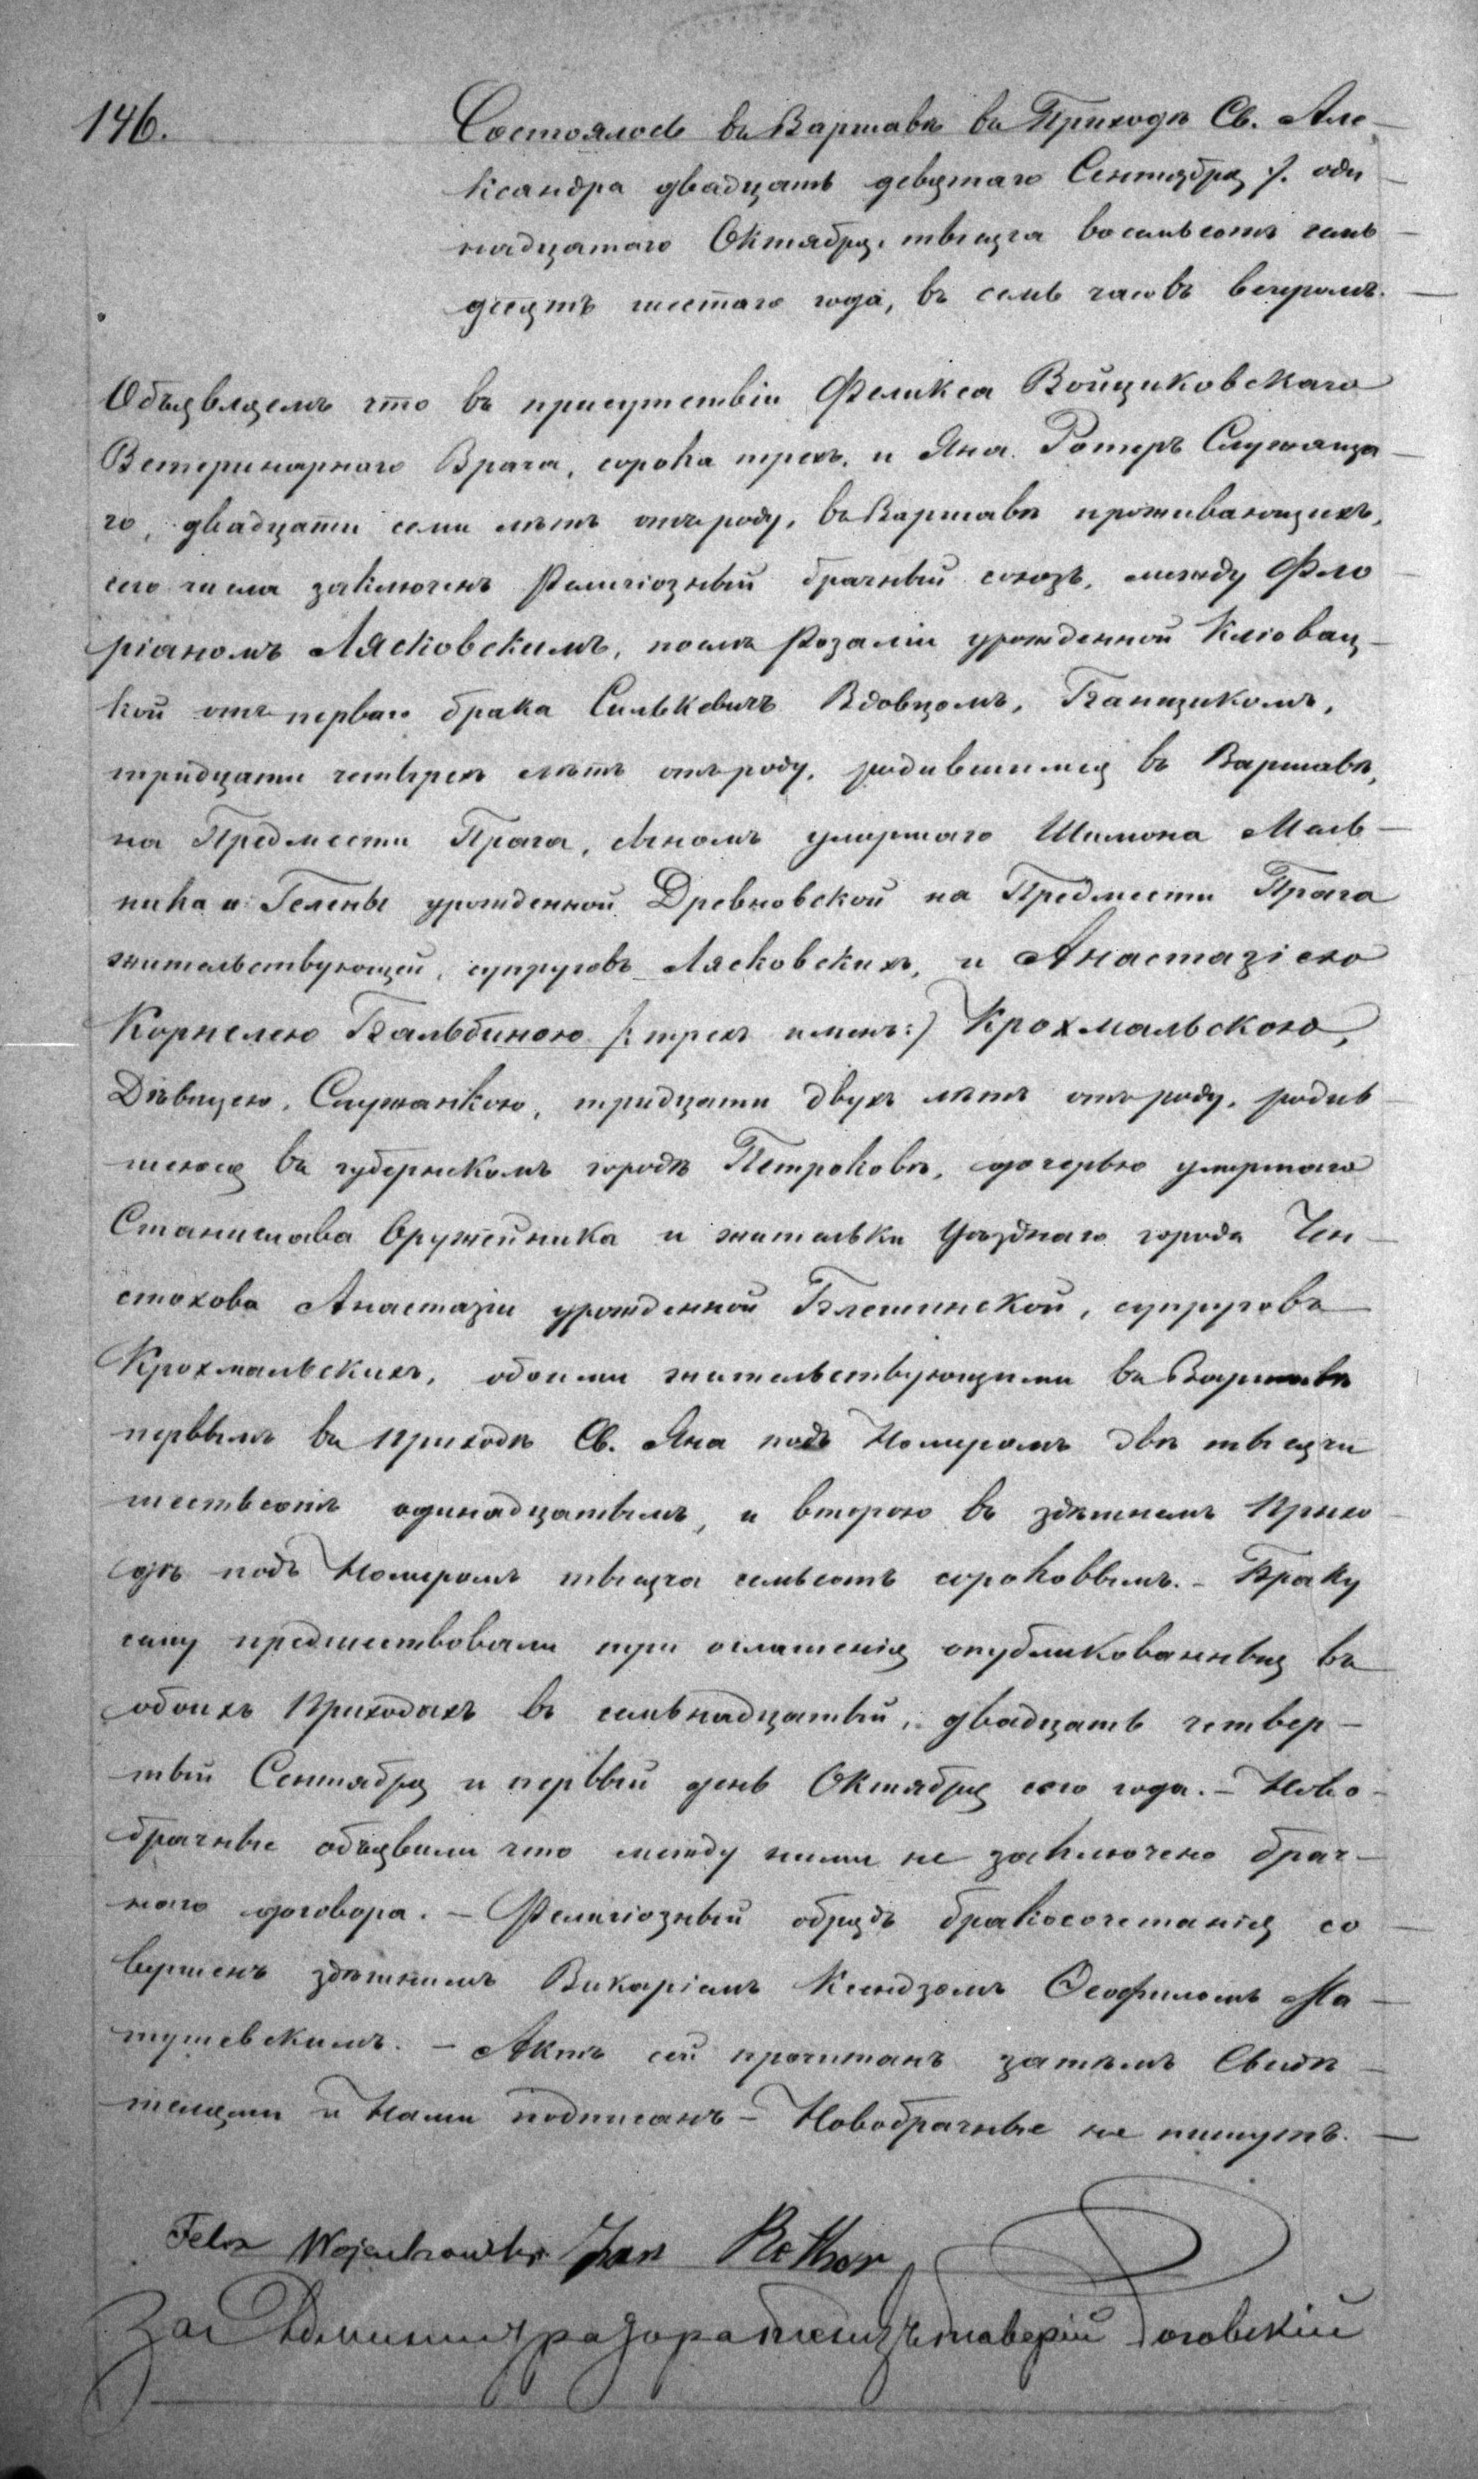 146. Состоялось въ Варшавѣ въ Приходѣ Св. Але-
ксандра двадцать девятаго Сентября /. оди-
надцатаго Октября, тысяча восемьсотъ семь-
десятъ шестаго года, въ семь часовъ вечеромъ. -
Объявляемъ что въ присутствіи Феликса Войциковскаго
Ветеринарнаго Врача, сорока трехъ, и Яна Ротеръ Служаща-
го, двадцати семи лѣтъ отъ роду, въ Варшавѣ проживающихъ,
сего числа заключенъ Религіозный брачный союзъ, между Фло-
ріаномъ Лясковскимъ, послѣ Розаліи урожденной Клювац-
кой отъ перваго брака Силькевичъ Вдовцомъ, Банщикомъ,
тридцати четырехъ лѣтъ отъ роду, родившимся въ Варшавѣ,
на Предмести Прага, сыномъ умершаго Шимона Мель-
ника и Гелены урожденной Древновской на Предмести Прага
жительствующей, супруговъ Лясковскихъ, и Анастазіею
Корнелею Бальбиною /: трехъ именъ :/ Крохмальскою,
Дѣвицею, Служанкою, тридцати двухъ лѣтъ отъ роду, родив-
шеюся въ губернскомъ городѣ Петроковѣ, дочерью умершаго
Станислава Оружейника и жительки Уѣзднаго города Чен-
стохова Анастазіи урожденной Блешинской, супруговъ
Крохмальскихъ, обоими жительствующими въ Варшавѣ
первымъ въ Приходѣ Св. Яна подъ Номеромъ двѣ тысячи
шестьсотъ одинадцатымъ, и второю въ здѣшнемъ Прихо-
дѣ подъ Номеромъ тысяча семьсотъ сороковымъ. - Браку
сему предшествовали три оглашенія опубликованныя въ
обоихъ Приходахъ въ семьнадцатый, двадцать четвер-
тый Сентября и первый день Октября сего года. - Ново-
брачные объявили что между ними не заключено брач-
наго договора. - Религіозный обрядъ бракосочетанія со-
вершенъ здѣшнимъ Викаріемъ Ксендзомъ Ѳеофиломъ Ма-
тушевскимъ. - Актъ сей прочитанъ затѣмъ Свидѣ-
телями и Нами подписанъ - Новобрачные не пишутъ. -
Felix Wojcikowski Jan Rother
За Администратора Ксендзъ Ксаверій Роговскій